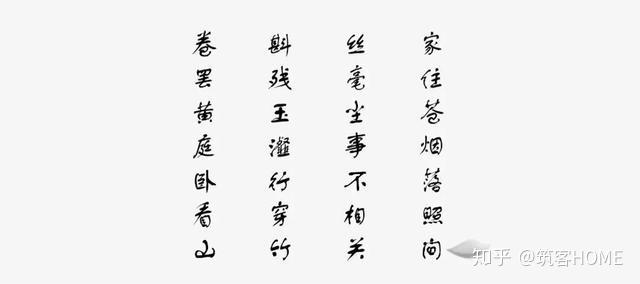 家住苍烟落照间
丝毫尘事不相关
斟残玉瀣行穿竹
卷罢黄庭卧看山
知乎 @筑客HOME